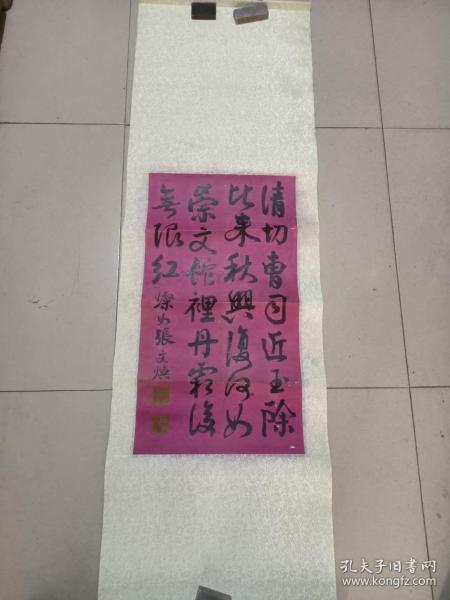 清切曹司近玉除
比来秋興復何如
崇文館裡丹霜後
無限紅 燦如張文煥
孔夫子旧书网
www.kongfz.com